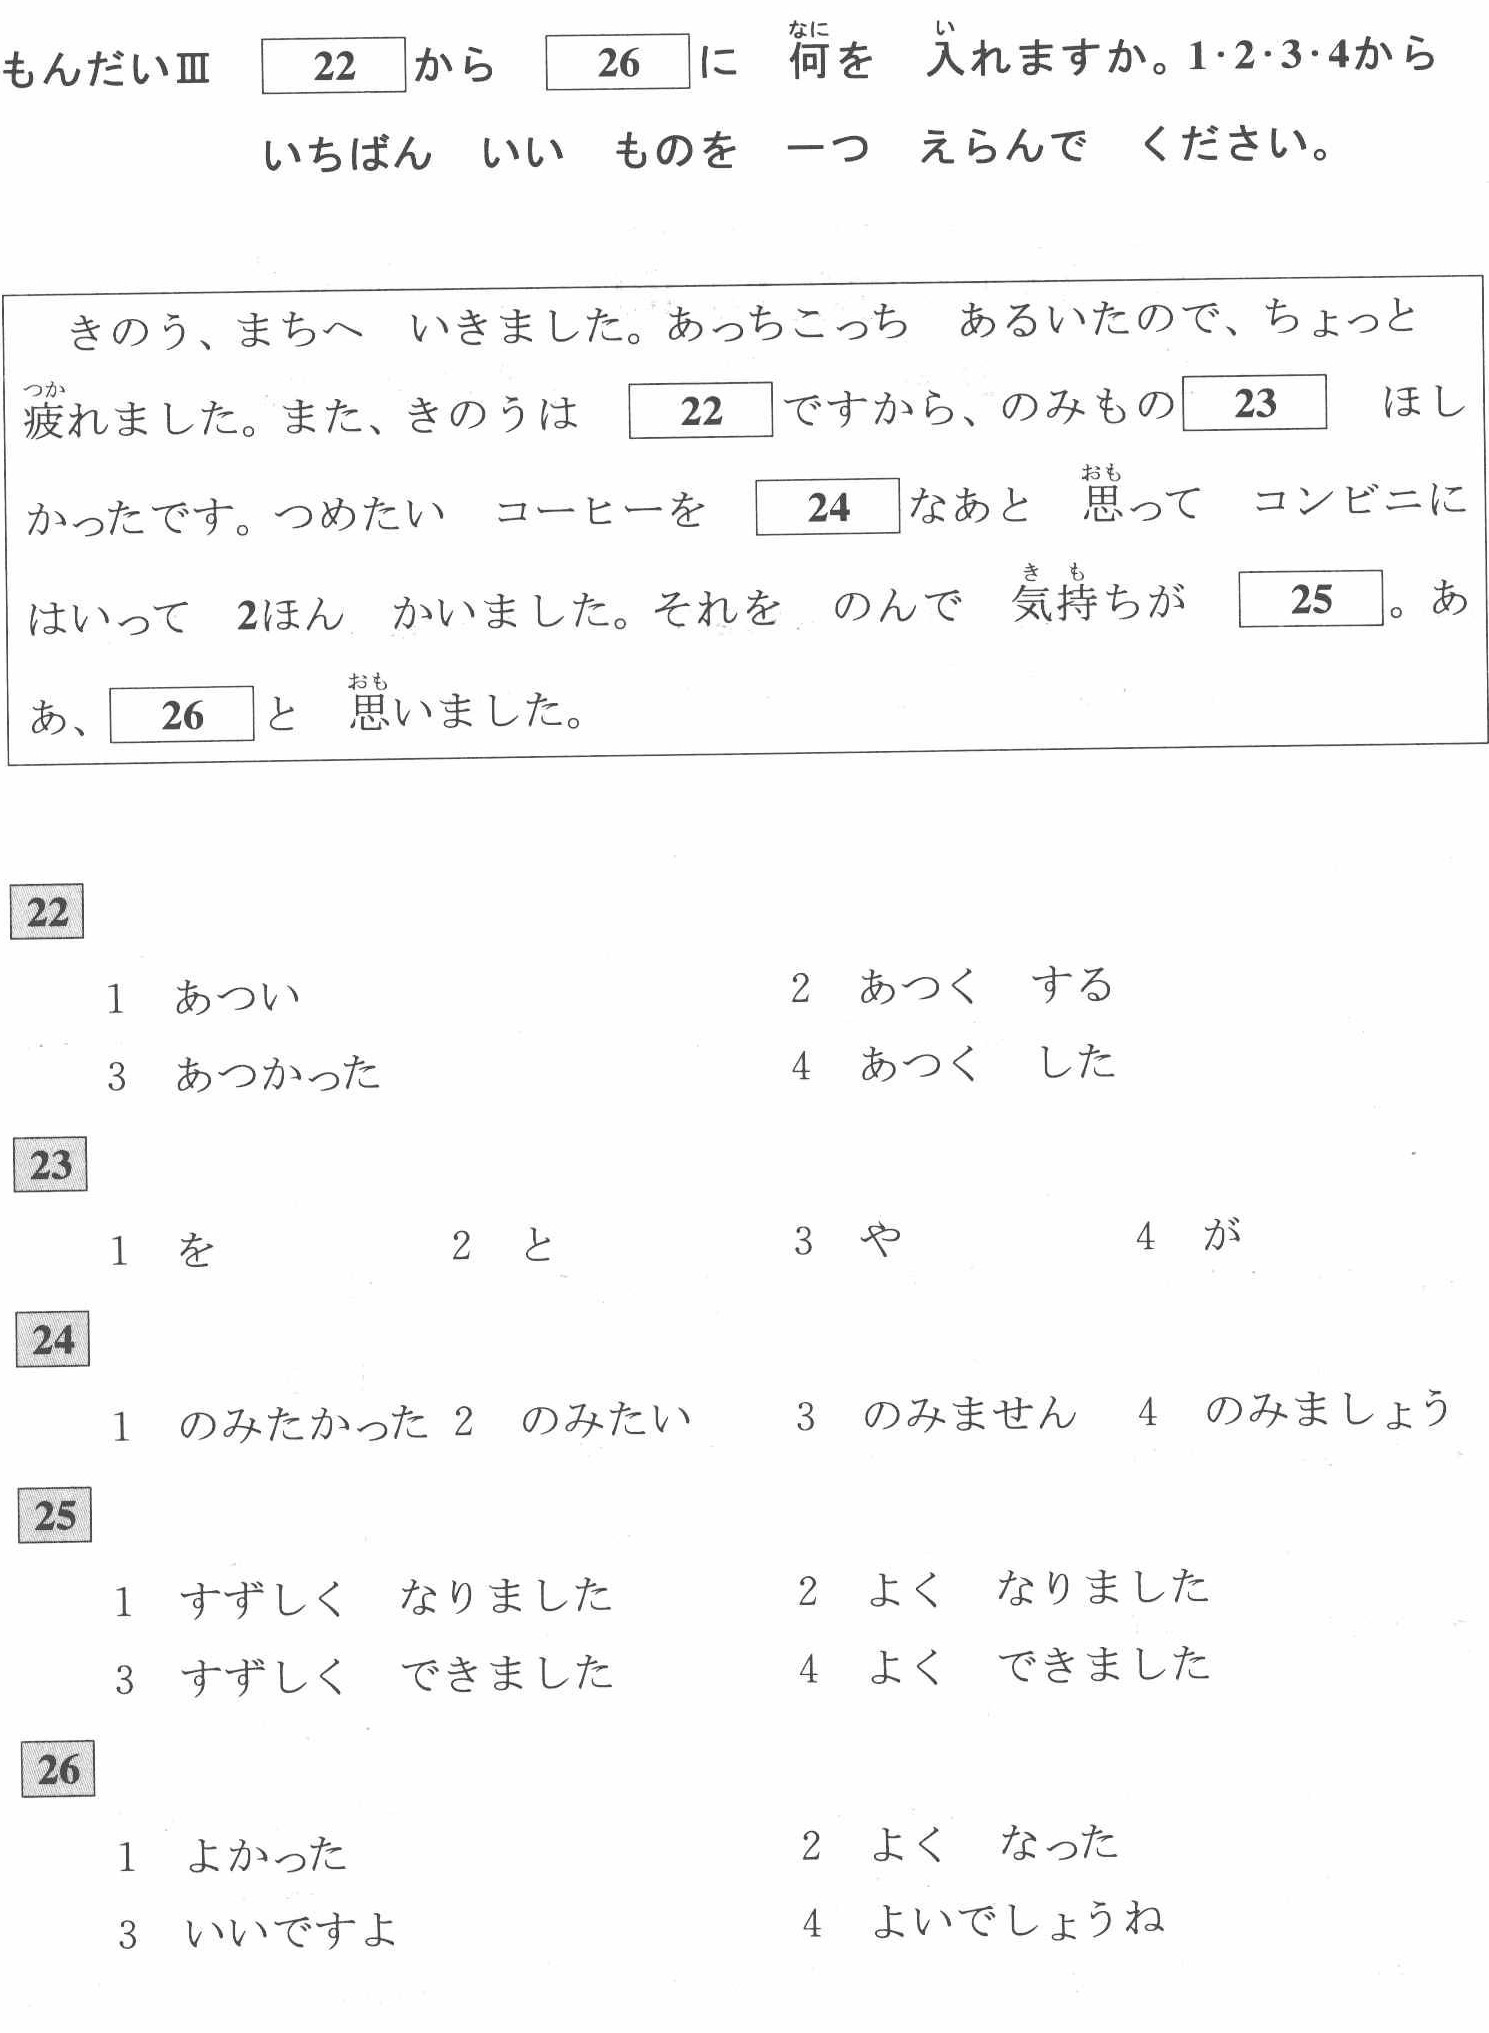 もんだいⅢ　22から　26に　何を　入れますか。1·2·3·4から
いちばん　いい　ものを　一つ　えらんで　ください。
きのう、まちへ　いきました。あっちこっち　あるいたので、ちょっと
疲れました。また、きのうは　22ですから、のみもの23　ほし
かったです。つめたい　コーヒーを　24なあと　思って　コンビニに
はいって　2ほん　かいました。それを　のんで　気持ちが　25。あ
あ、26と　思いました。
22
1　あつい　2　あつく　する
3　あつかった　4　あつく　した
23
1　を　2　と　3　や　4　が
24
1　のみたかった　2　のみたい　3　のみません　4　のみましょう
25
1　すずしく　なりました　2　よく　なりました
3　すずしく　できました　4　よく　できました
26
1　よかった　2　よく　なった
3　いいですよ　4　よいでしょうね